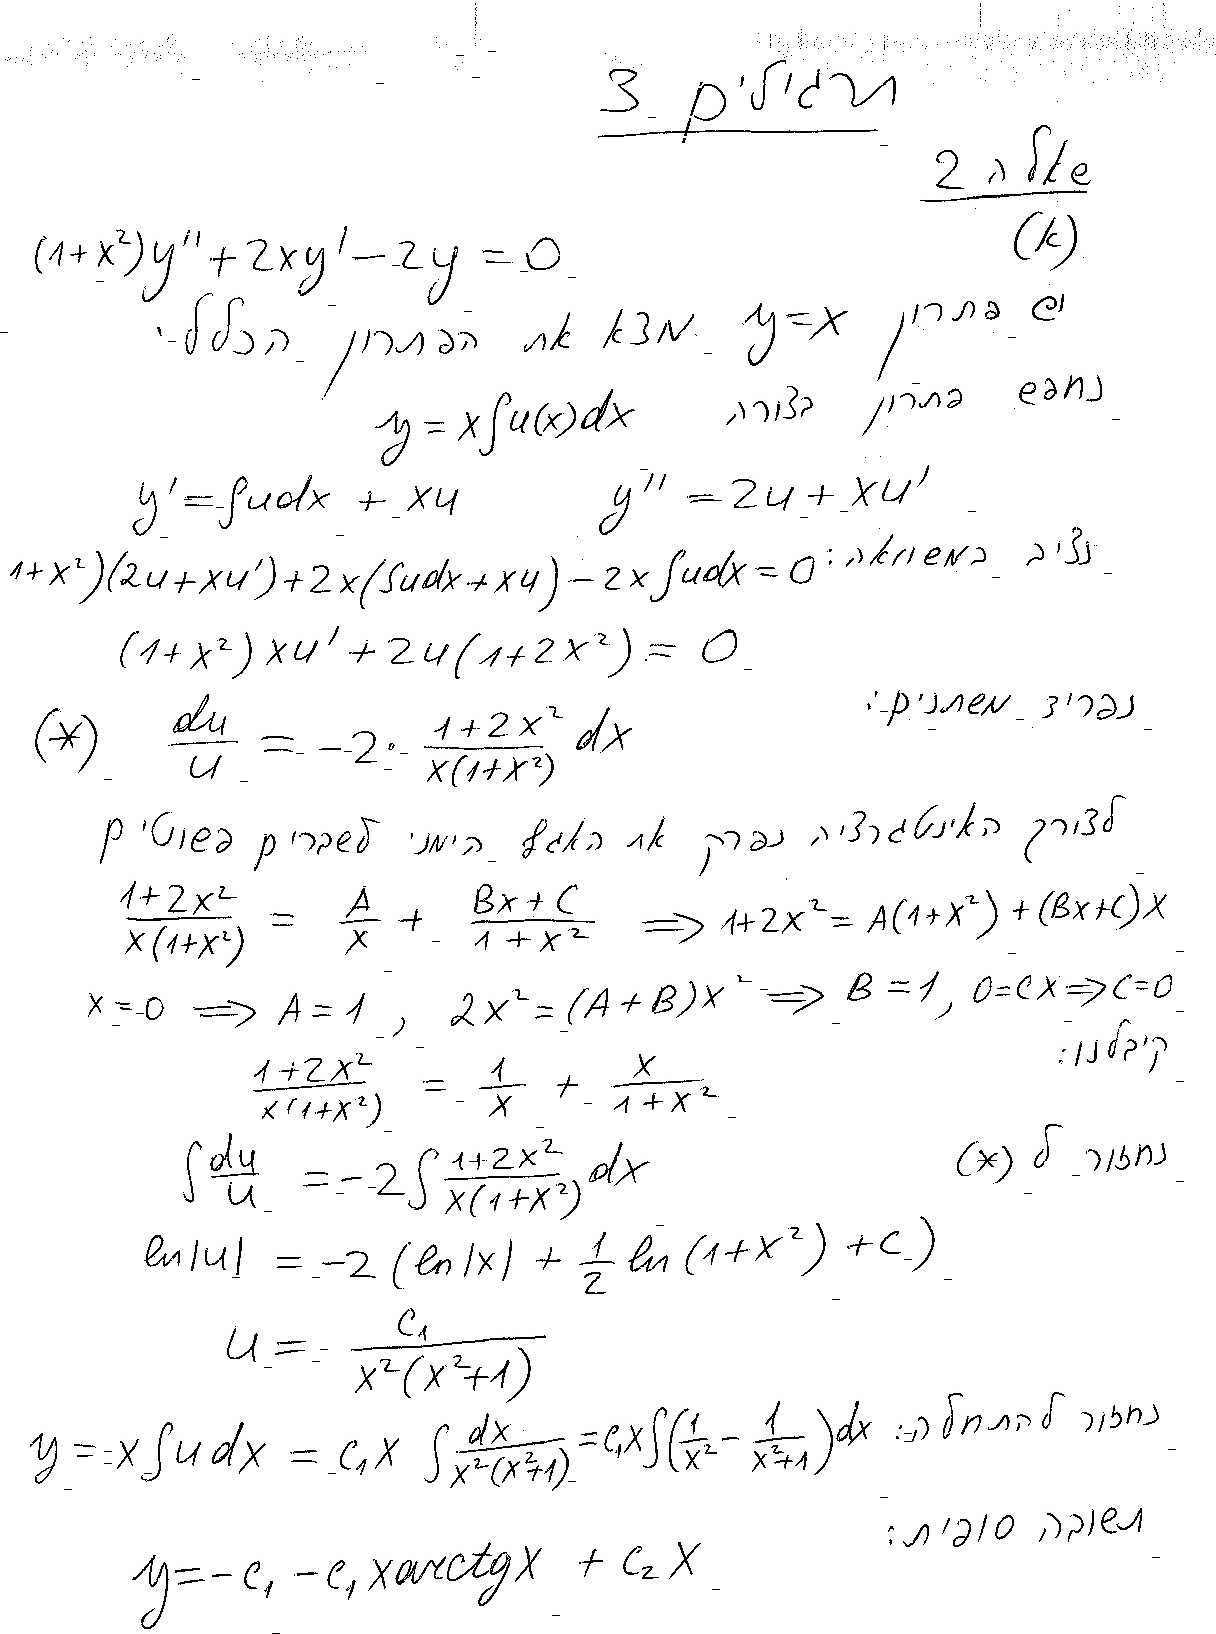 תרגילים 3
שאלה 2
(א)
(1+x²)y'' + 2xy' − 2y = 0
יש פתרון y=x מצא את הפתרון הכללי.
נחפש פתרון בצורה y = x∫u(x)dx
y' = ∫udx + xu   y'' = 2u + xu'
נציב במשוואה: 1+x²)(2u+xu')+2x(∫udx+xu)−2x∫udx=0
(1+x²)xu' + 2u(1+2x²) = 0
נפריד משתנים:
(*) du/u = −2 · (1+2x²)/(x(1+x²)) dx
לצורך האינטגרציה נפרק את האגף הימני לשברים פשוטים
(1+2x²)/(x(1+x²)) = A/x + (Bx+C)/(1+x²) ⟹ 1+2x² = A(1+x²)+(Bx+C)x
x=0 ⟹ A=1, 2x²=(A+B)x² ⟹ B=1, 0=Cx ⟹ C=0
קיבלנו:
(1+2x²)/(x(1+x²)) = 1/x + x/(1+x²)
נחזור ל (*)
∫du/u = −2∫(1+2x²)/(x(1+x²)) dx
ln|u| = −2(ln|x| + 1/2 ln(1+x²) + C)
u = C₁/(x²(x²+1))
נחזור להתחלה: y = x∫udx = C₁x ∫dx/(x²(x²+1)) = C₁x∫(1/x² − 1/(x²+1))dx
תשובה סופית:
y = −C₁ − C₁xarctgx + C₂x